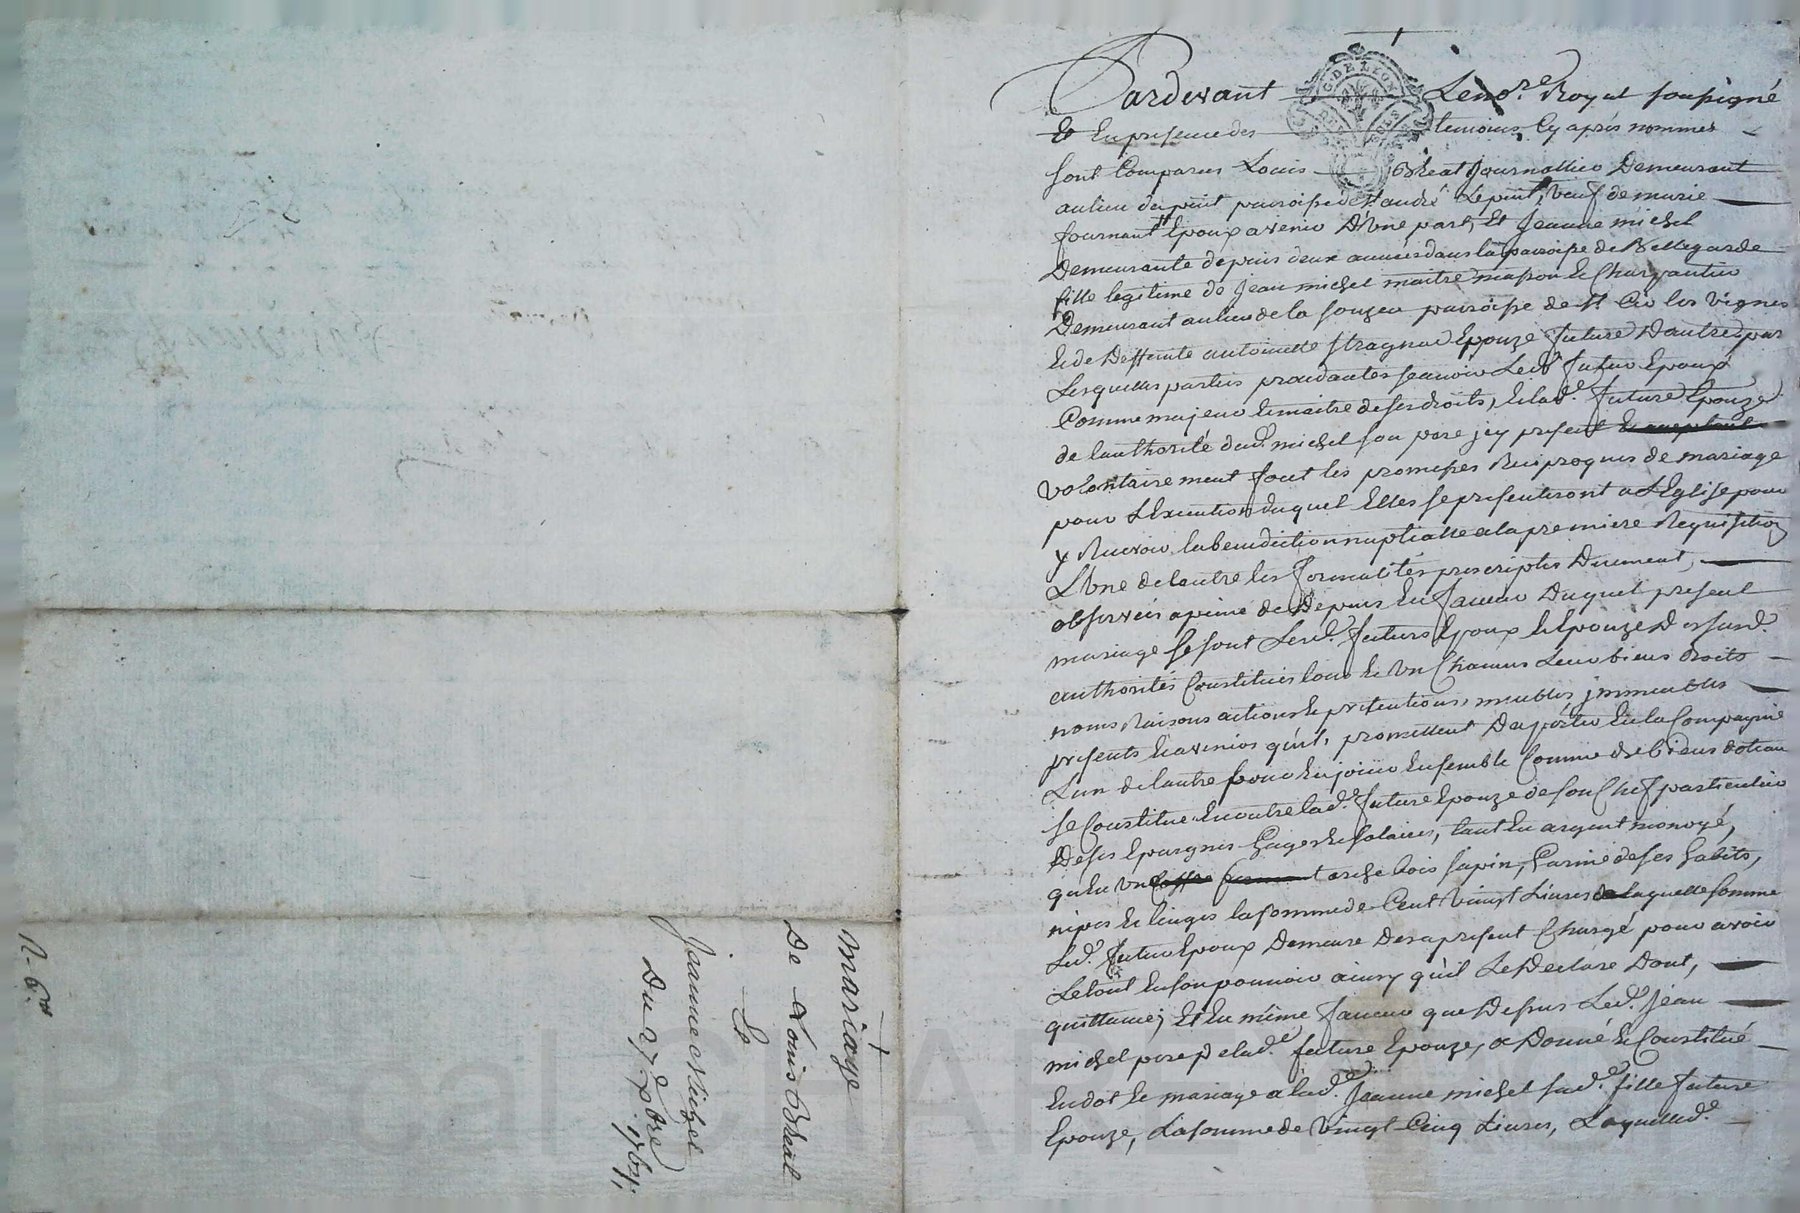 Pardevant Le no.re Royal soussigné
G. DE LYON
DEUX SOLS
& En presence des temoins, Cy aprés nommés
sont Comparus Louis Bréat Journallier Demeurant
au lieu du pint parroisse de St. andré Le puit, veuf de marie
fournant Epoux a venir D'Une part, Et Jeanne michel
Demeurante depuis deux années dans la parroisse de Bellegarde
fille legitime de Jean michel maitre masson Et Charpantier
Demeurant au lieu de la fouzea parroisse de St. Cir les Vignes
Et de Deffunte antoinette Epouze future D'autre par
Lesquelles parties procedantes sçavoir Led. futur Epoux
Comme majeur Et maitre de ses droits, Et lad.e future Epouze
de l'authorité dud. michel son pere jcy present
volontairement font les promesses Reciproques de mariage
pour L'Execution duquel Elles se presenteront a L'Eglise pour
y Recevoir la benediction nuptialle a la premiere Requisition
L'Une de l'autre les formalités prescriptes Duement,
observées a peine de Depens En faveur Duquel present
mariage se sont Lesd. futurs Epoux Et Epouze D. susd.
authorités Constitués tous Et Un Chacuns Leur biens droits
noms Raisons actions Et pretentions, meubles jmmeubles
presents Et avenirs qu'ils promettent D'aporter En la Compagnie
L'un de l'autre pour En joüir Ensemble Comme de biens dotaux
se Constitue En outre lad.e future Epouze de son Chef particulier
De ses Epargnes Gages Et salaires, tant En argent monoyé,
qu'En Un coffre arche bois sapin, Garnie de ses habits,
nipes Et linges la somme de Cent Vingt Livres de laquelle somme
Led. futur Epoux Demeure Des a present Chargé pour avoir
Le tout En son pouvoir ainsy qu'il Le Declare Dont,
quittance; Et En même faveur que Dessus Led. Jean
michel pere De lad.e future Epouze, a Donné Et Constitué
En dot Et mariage a lad.e Jeanne michel sad.e fille future
Epouze, La somme de Vingt Cinq Livres, Laquelled.e
mariage
De Louis Bréat
Et
Jeanne Michel
Du 27 7bre 1761.